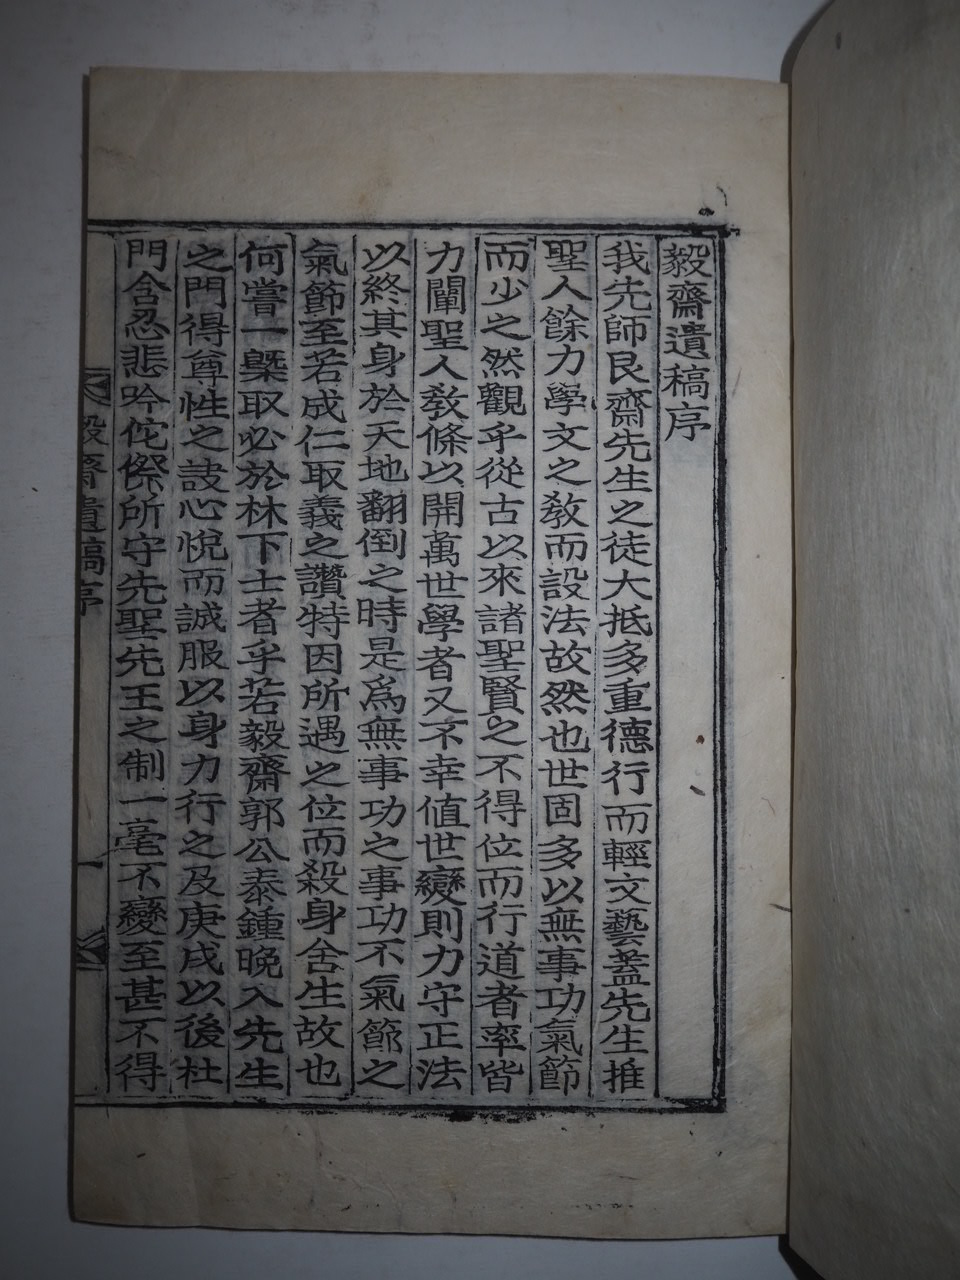 毅齋遺稿序
我先師艮齋先生之徒大抵多重德行而輕文藝蓋先生推
聖人餘力學文之敎而設法故然也世固多以無事功氣節
而少之然觀乎從古以來諸聖賢之不得位而行道者率皆
力闡聖人敎條以開萬世學者又不幸値世變則力守正法
以終其身於天地翻倒之時是爲無事功之事功不氣節之
氣節至若成仁取義之讚特因所遇之位而殺身舍生故也
何嘗一槩取必於林下士者乎若毅齋郭公泰鍾晚入先生
之門得尊性之訣心悅而誠服以身力行之及庚戌以後杜
門含忍悲吟侘傺所守先聖先王之制一毫不變至甚不得
毅齋遺稿序
一